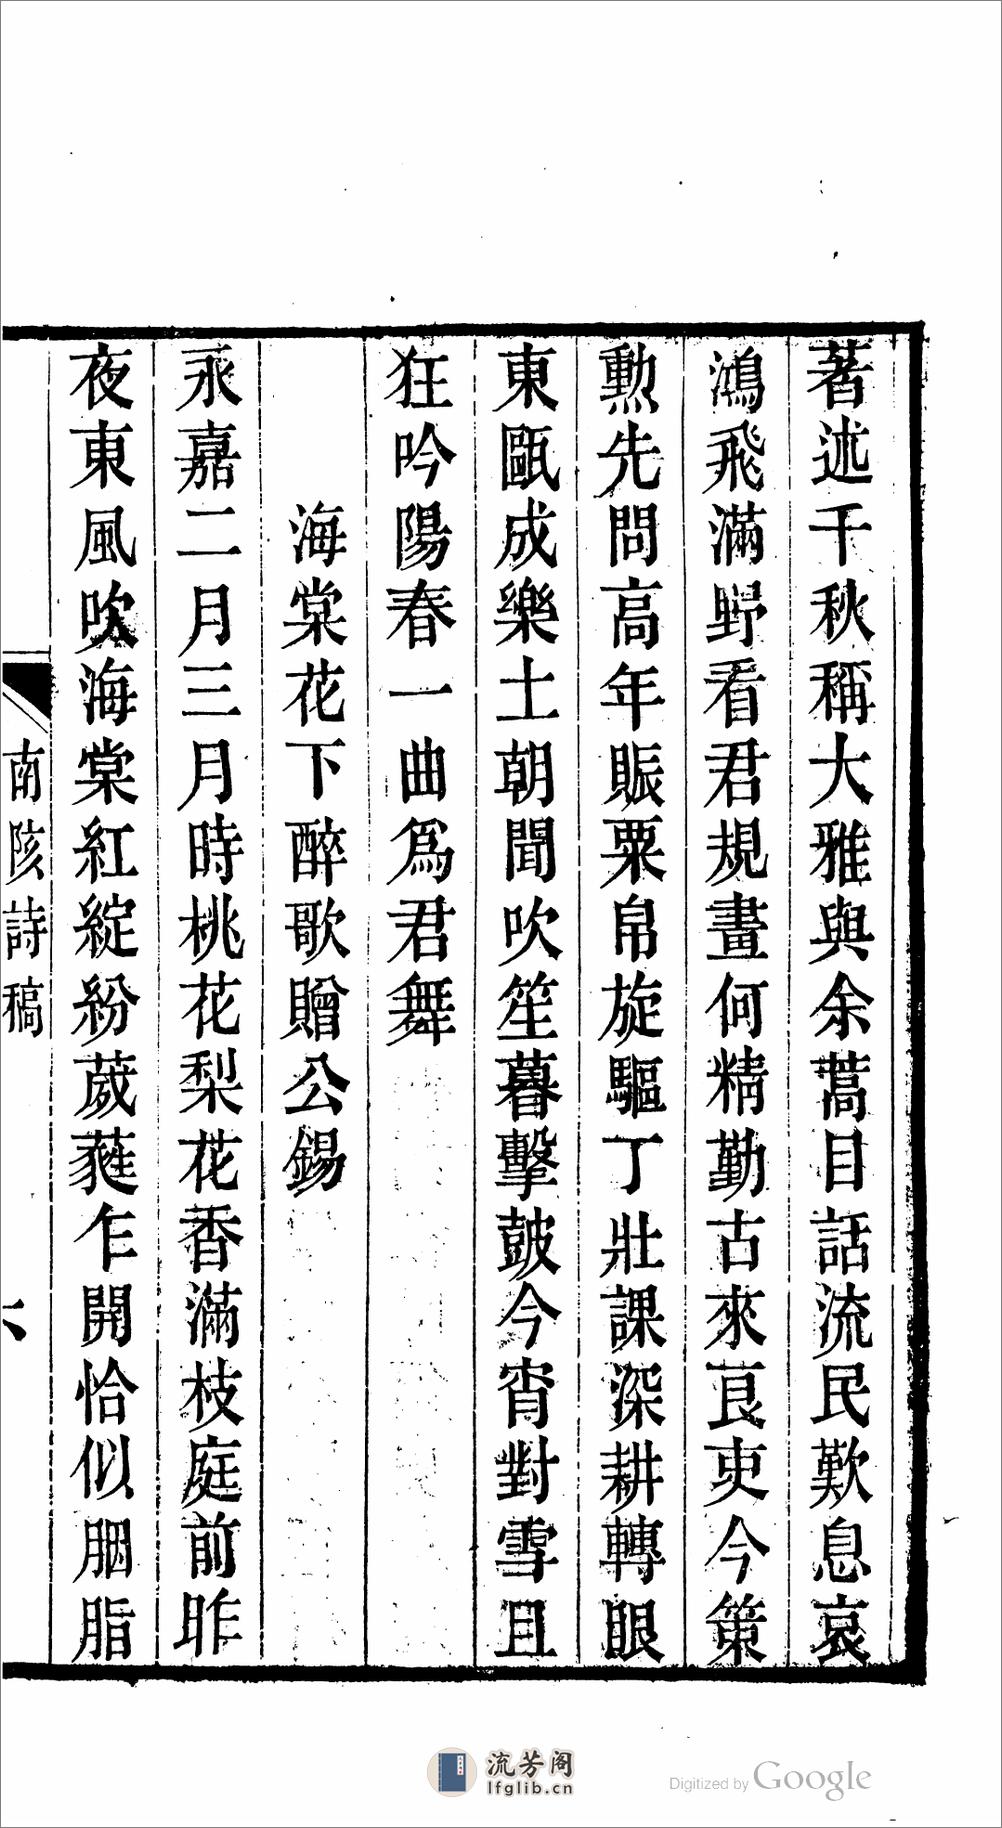 著述千秋稱大雅與余蒿目話流民歎息哀
鴻飛滿野看君規畫何精勤古來良吏今策
勲先問高年賑粟帛旋驅丁壯課深耕轉眼
東甌成樂土朝聞吹笙暮擊鼓今宵對雪且
狂吟陽春一曲爲君舞
海棠花下醉歌贈公錫
永嘉二月三月時桃花梨花香滿枝庭前昨
夜東風吹海棠紅綻紛葳蕤乍開恰似胭脂
南陔詩稿
六
流芳阁
lfglib.cn
Digitized by Google